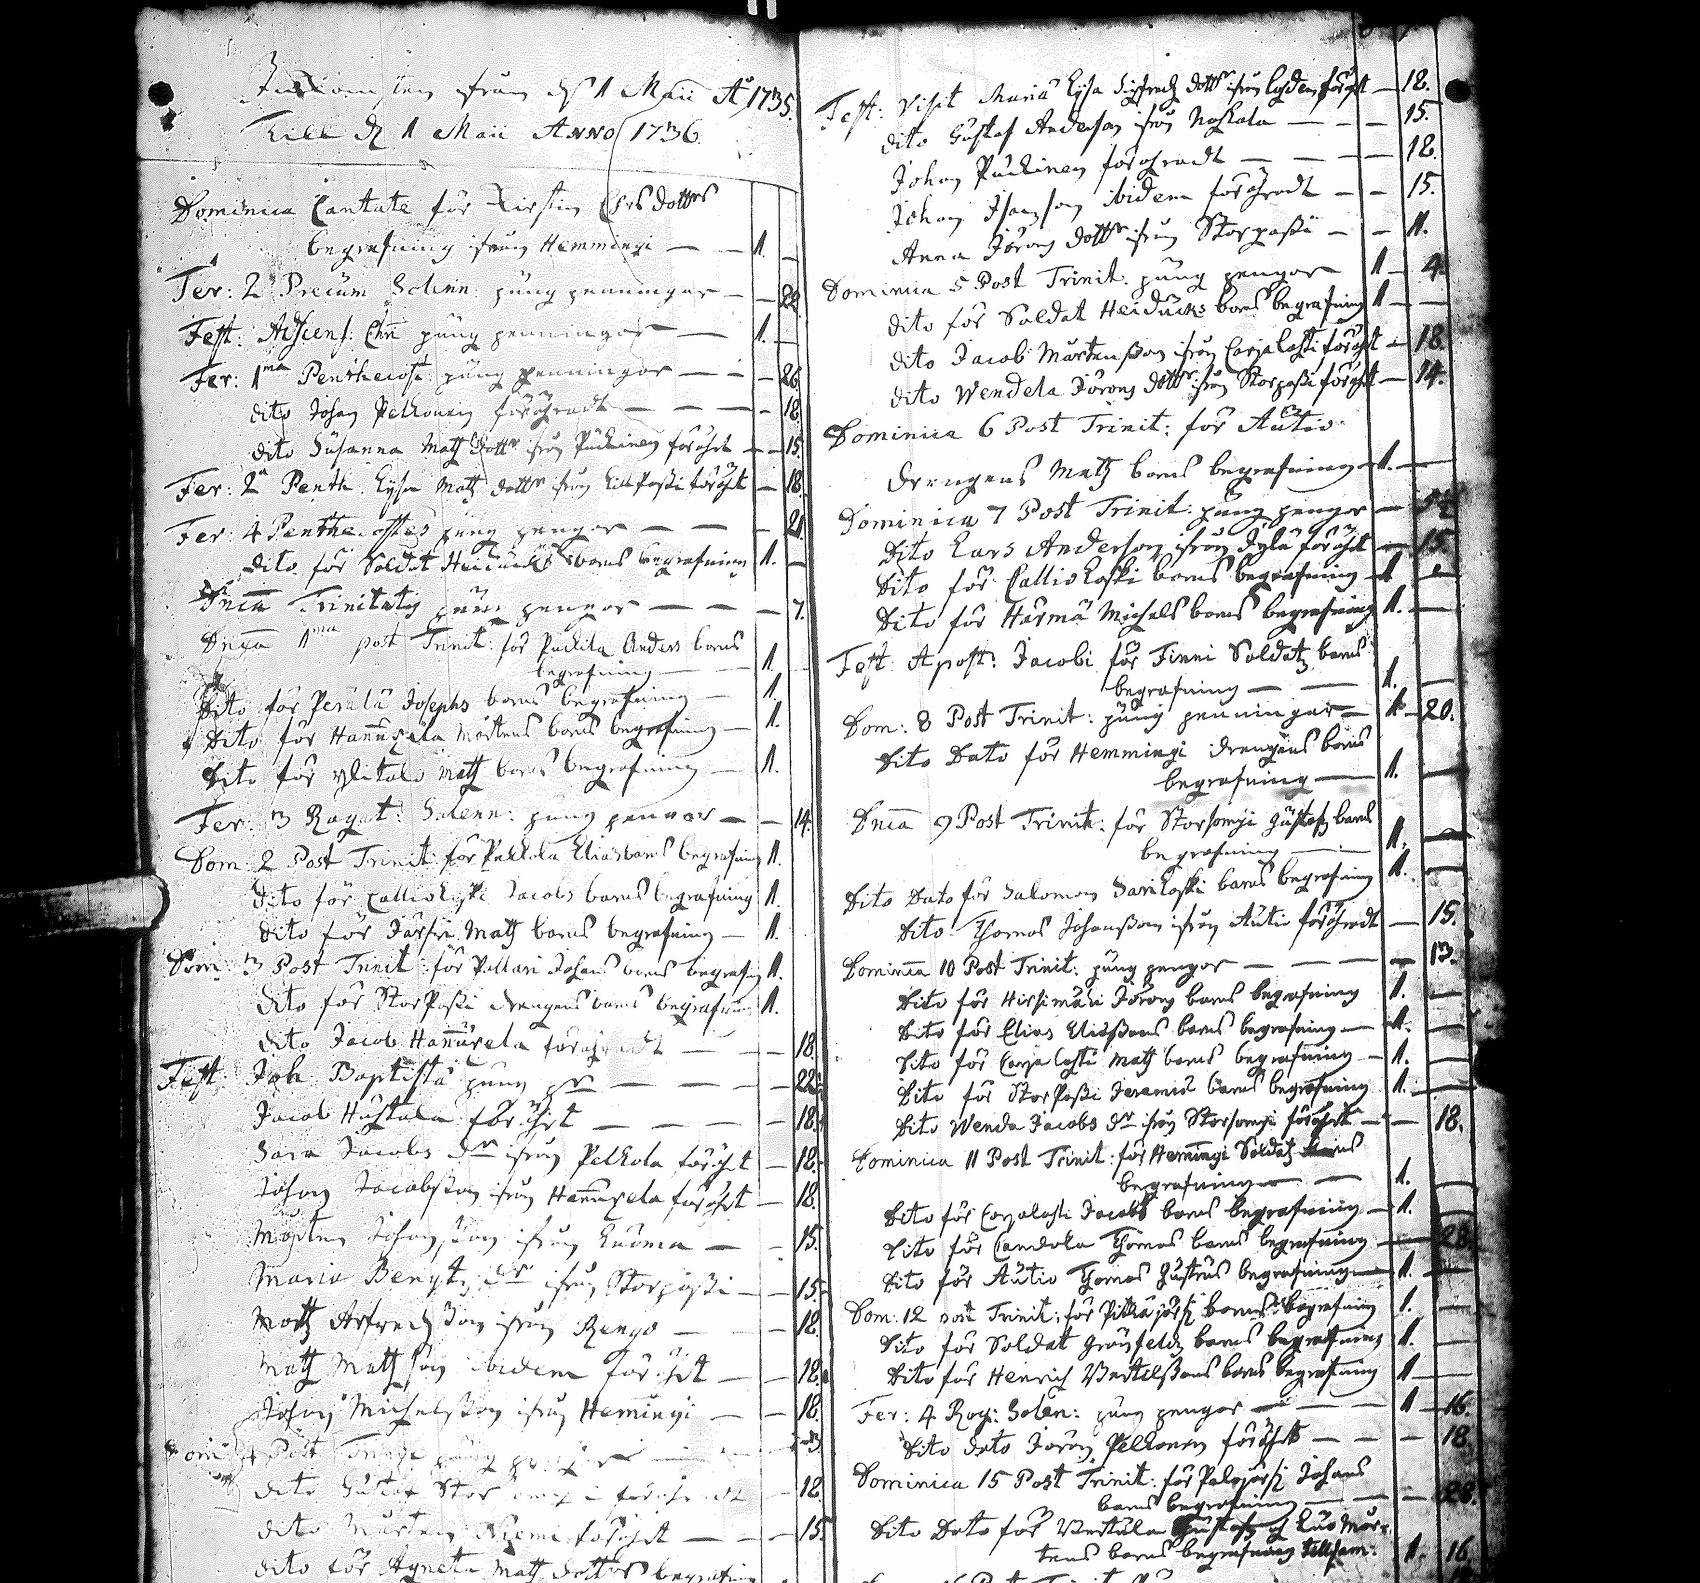 Inkomsten ifrån d 1 Maii A 1735.
Till d 1 Maii Anno 1736.
Dominica Cantate för Kirstin Ehrs dotters
begrafning ifrån Hemmingi — — 1. —
Fer: 2 Precum Solenn: pung penningar — — 22
Fest: Adscens: Chri pung penningar — — 1. —
Fer: 1ma Penthecost: pung penningar — — 26
dito Johan Pelkonen förähradt — — — 18
dito Susanna Matz dottr ifrån Puckinen förährt — — 15
Fer: 2a Penth. Lysa Matz dottr ifrån förährt — 18
Fer: 4 Penthecostes pung pengar — — — 21
dito för Soldat Heiducks barns begrafning 1. —
Dnica Trinitatis pung pengar — — — 7.
Dnica 1ma post Trinit: för Anders barns
begrafning — — 1. —
Dito för Perälä Josephs barns begrafning — 1.
Dito för Hannuxela Mårtens barns begrafning — 1.
Dito för Ylitalo Matz barns begrafning — 1.
Fer: 3 Rogat: Solenn: pung pengar — — 14.
Dom: 2 Post Trinit: för Pelkola Elias barns begrafning 1.
dito för Calliokoski Jacobs barns begrafning 1.
dito för Matz barns begrafning — 1.
Dom: 3 Post Trinit: för Pellari Johans barns begrafn 1.
dito för Storpassi drengens barns begrafning 1.
dito Jacob Hannuxela förähradt — — 18.
Fest: Joh: Baptistæ pung — — — 22.
Jacob Huhtala förährt — — — — 18.
Sara Jacobs dr ifrån Pelkola förährt — 18.
Johan Jacobsson ifrån Hannuxela förährt — 18.
Mårten Johansson ifrån Luoma — — 15.
Maria Bengtz dr ifrån Storpassi — — 15.
Matz ifrån Rengo — — 18.
Matz Matzson ibidem förährt — — 18.
Johan Michelsson ifrån Hemingi — — 18.
Dom: 4 Post Trinit: pung pengar — —
dito Gustaf förähradt — 12
dito Mårten Niemi förährt — — — 15.
dito för Agneta Matz dotters begrafning
Fest: Visit Mariæ Lysa dottr ifrån förährt — 18.
dito Gustaf Anderson ifrån Noskala — — — 15.
Johan Puckinen förähradt — — — — 18.
Johan ibidem förähradt — — 15.
Anna Jörans dottr ifrån Storpassi — — 11.
Dominica 5 Post Trinit: pung pengar — 1 — 4
dito för Soldat Heiducks barns begrafning 1 — —
dito Jacob Mårtensson ifrån Corjalasti förährt — 18.
dito Wendela Jörans dottr ifrån Storpassi förährt — 14.
Dominica 6 Post Trinit: för Autio
drengens Matz barns begrafning — 1. —
Dominica 7 Post Trinit: pung pengar —
Dito Lars Anderson ifrån förährt — 15.
Dito för Calliokoski barns begrafning — 1 —
Dito för Harmä Michels barns begrafning 1. —
Fest: Apost: Jacobi för Finni Soldatz barns
begrafning — — 1. —
Dom: 8 Post Trinit: pung penningar — 1 — 20.
Dito Dato för Hemmingi drengens barns
begrafning — 1. —
Dnica 9 Post Trinit: för Storsomji Gustafz barns
begrafning — — 1. —
Dito Dato för Salomon Sarikoski barns begrafning 1. —
Dito Thomas Johansson ifrån Autio förähradt — 15.
Dominica 10 Post Trinit: pung pengar — — — 13.
Dito för Hirsimäki Jörans barns begrafning 1. —
Dito för Elias Eliassons barns begrafning — 1. —
Dito för Corjalasti Matz barns begrafning — 1. —
Dito för Storpassi Jeremiæ barns begrafning 1. —
Dito Wenda Jacobs dr ifrån Storsomji förährt — — 18.
Dominica 11 Post Trinit: för Hemmingi Soldatz barns
begrafning — — 1. —
Dito för Corjalasti Jacobs barns begrafning — 1. —
Dito för Candola Thomas barns begrafning — 28.
Dito för Autio Thomas hustrus begrafning — 1. —
Dom: 12 post Trinit: för Pitkäjärfi barns begrafning 1. —
Dito för Soldat Grönfeldz barns begrafning 1. —
Dito för Henrich Bertelssons barns begrafning 1 —
Fer: 4 Rog: Solen: pung pengar — — — 1 — 16.
Dito dato Jöran Pelkonen förährt — — — 18.
Dominica 15 Post Trinit: för Palojärfi Johans
barns begrafning — — — 28.
Dito Dato för Gustafz och Luo Mår-
tens barns begrafning tillsam: 1. 16.